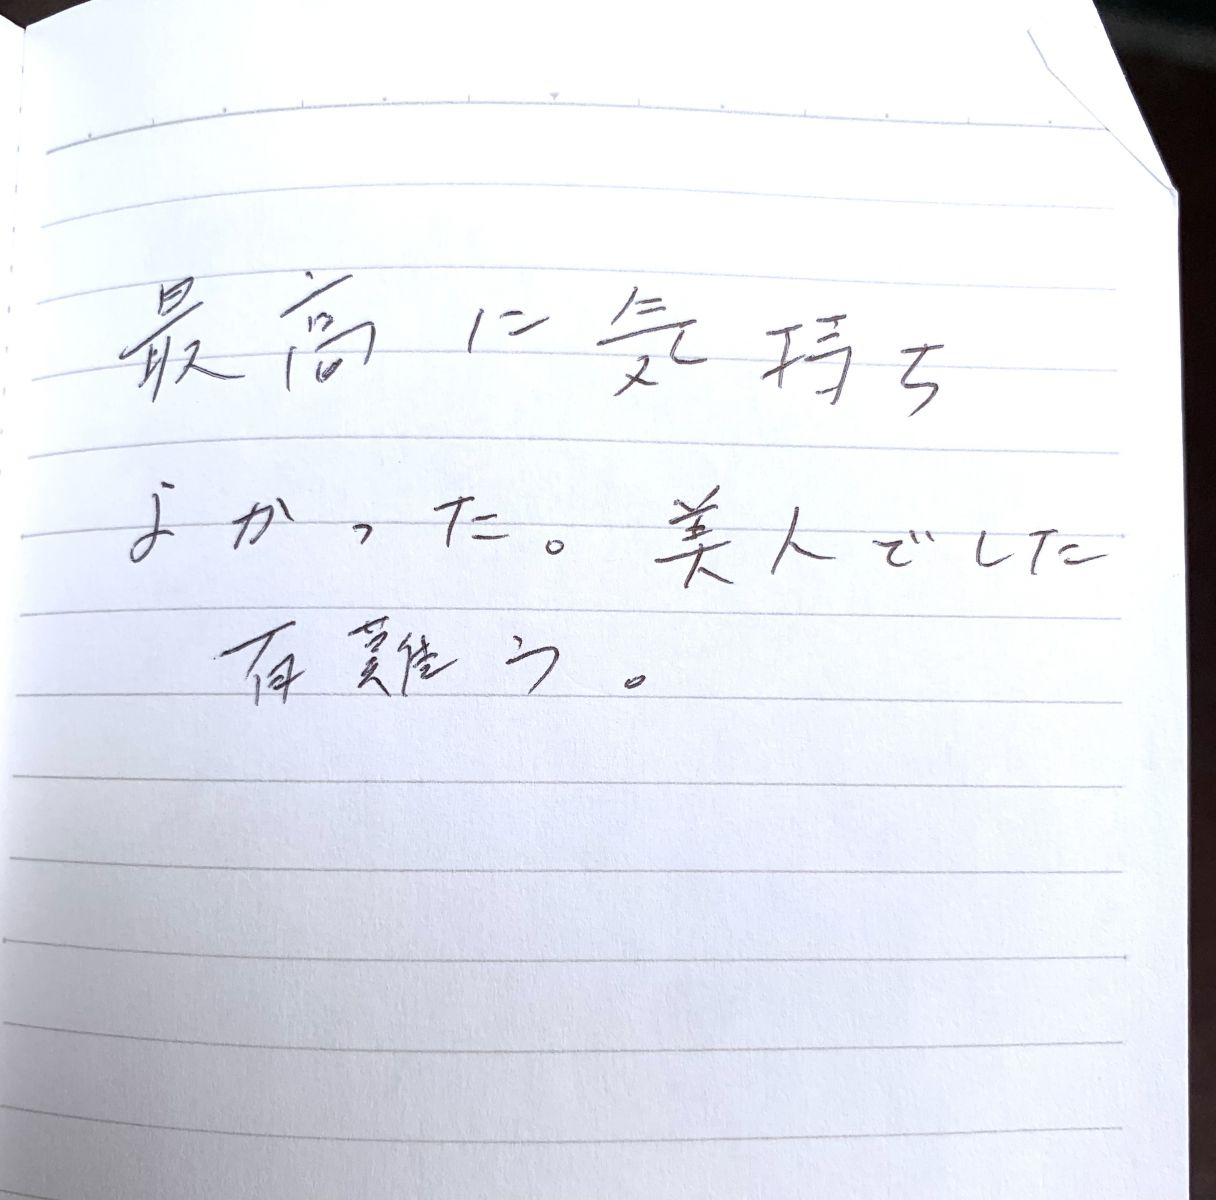 最高に気持ち
よかった。美人でした
有難う。